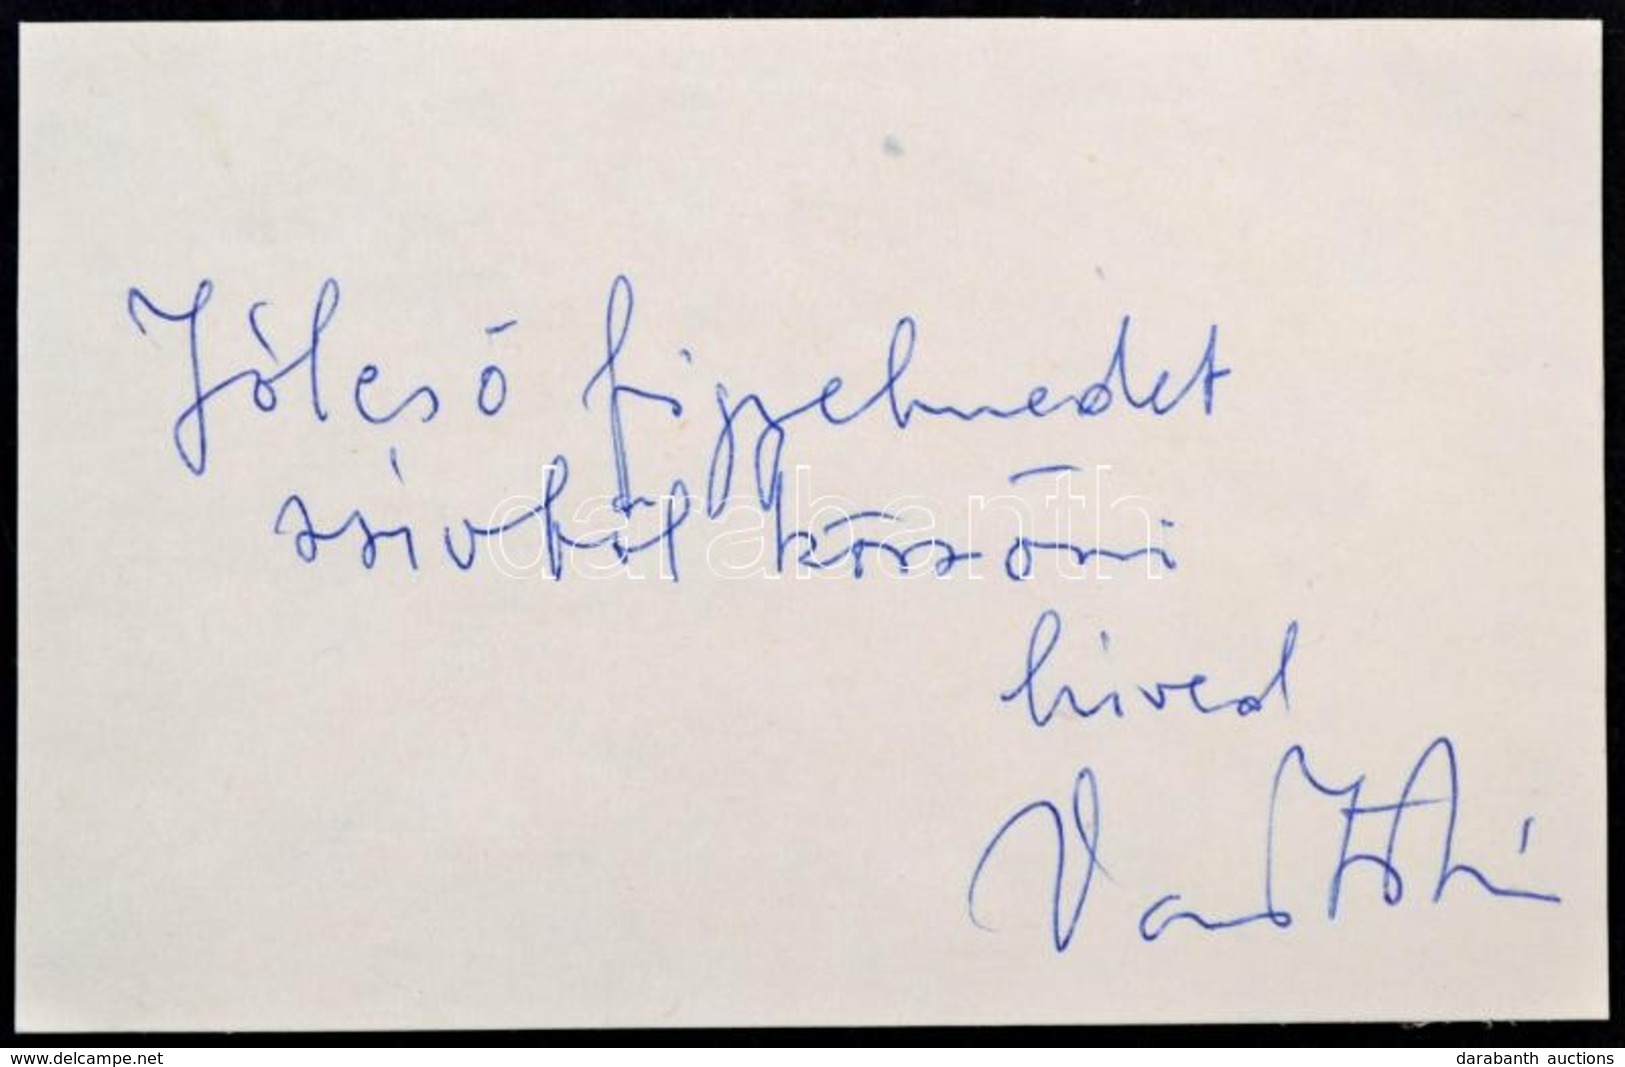 Jóleső figyelmedet
szívből köszöni
híved
Vas
darabanth
www.delcampe.net
darabanth auctions